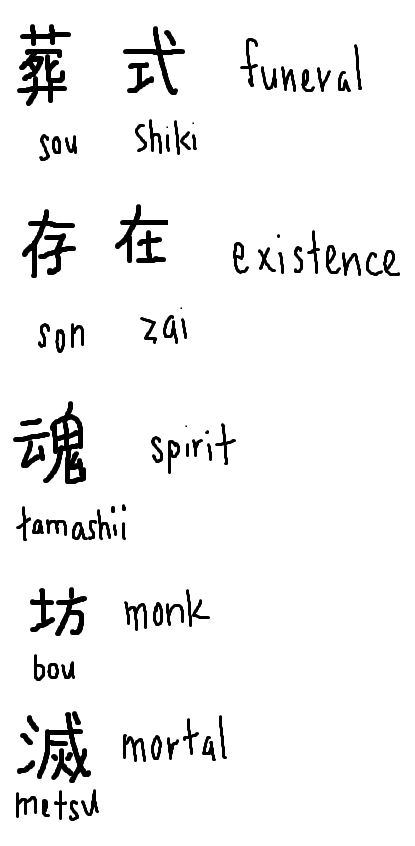 葬式 funeral
sou shiki
存在 existence
son zai
魂 spirit
tamashii
坊 monk
bou
滅 mortal
metsu